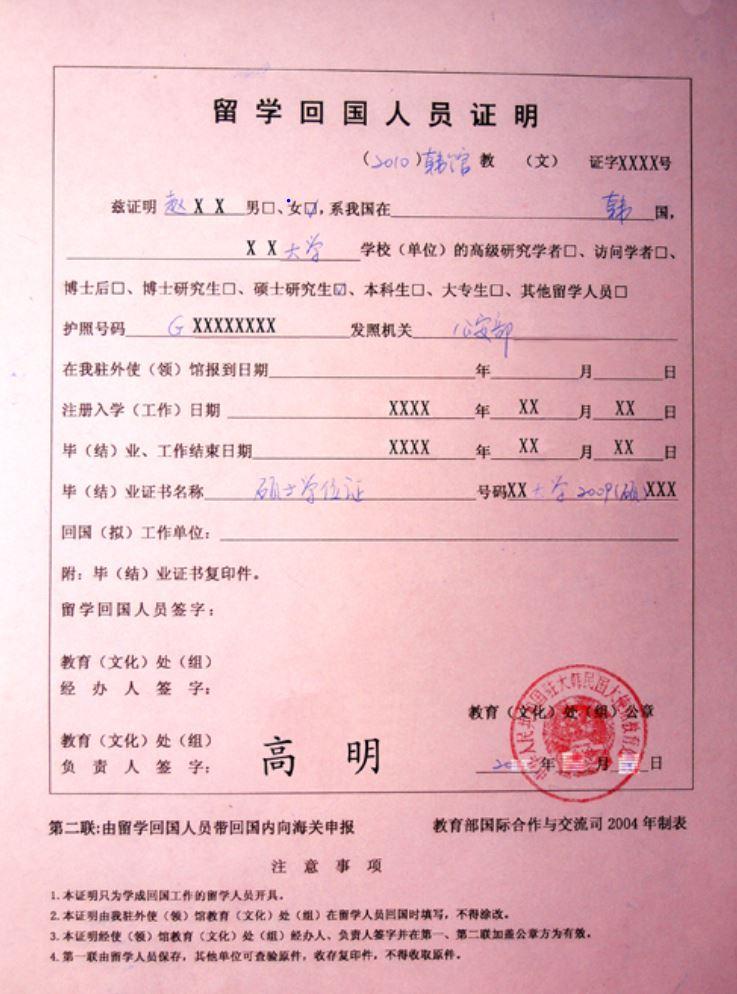 留学回国人员证明
（2010）韩馆教（文）证字XXXX号
兹证明 赵XX 男□、女☑，系我国在 韩 国，
XX大学 学校（单位）的高级研究学者□、访问学者□、
博士后□、博士研究生□、硕士研究生☑、本科生□、大专生□、其他留学人员□
护照号码 G XXXXXXXX 发照机关 公安部
在我驻外使（领）馆报到日期 年 月 日
注册入学（工作）日期 XXXX 年 XX 月 XX 日
毕（结）业、工作结束日期 XXXX 年 XX 月 XX 日
毕（结）业证书名称 硕士学位证 号码XX大学2009(硕)XXX
回国（拟）工作单位：
附：毕（结）业证书复印件。
留学回国人员签字：
教育（文化）处（组）
经办人签字：
教育（文化）处（组）公章
教育（文化）处（组）
负责人签字： 高明
20 年 月 日
第二联:由留学回国人员带回国内向海关申报 教育部国际合作与交流司2004年制表
注意事项
1.本证明只为学成回国工作的留学人员开具。
2.本证明由我驻外使（领）馆教育（文化）处（组）在留学人员回国时填写，不得涂改。
3.本证明经使（领）馆教育（文化）处（组）经办人、负责人签字并在第一、第二联加盖公章方为有效。
4.第一联由留学人员保存，其他单位可查验原件，收存复印件，不得收取原件。